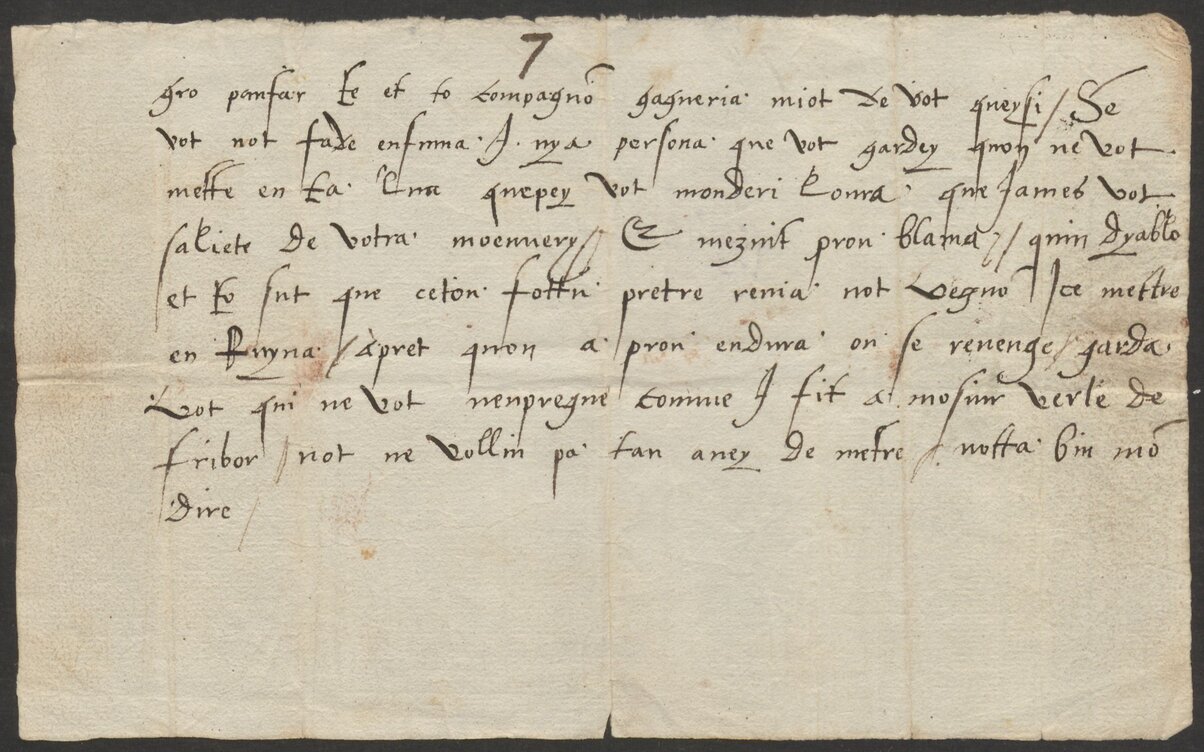 7
gro panfar te et to compagnō gagneria miot de vot queysi / Se
vot not fade enfuma. I. nya persona que vot gardey quon ne vot
mette en ta lua quepey vot monderi loura que James vot
saliete de votra moennery // Et mezuit pron blama // quin dyablo
et to sut que ceton fottu pretre renia not vegnō Ice mettre
en Ruyna / apret quon a pron endura on se revenge / garda
vot qui ne vot nenpregne comme I fit a mosiur verle de
fribor / not ne vollin pa tan aney de metre / notta bin mō
dire /